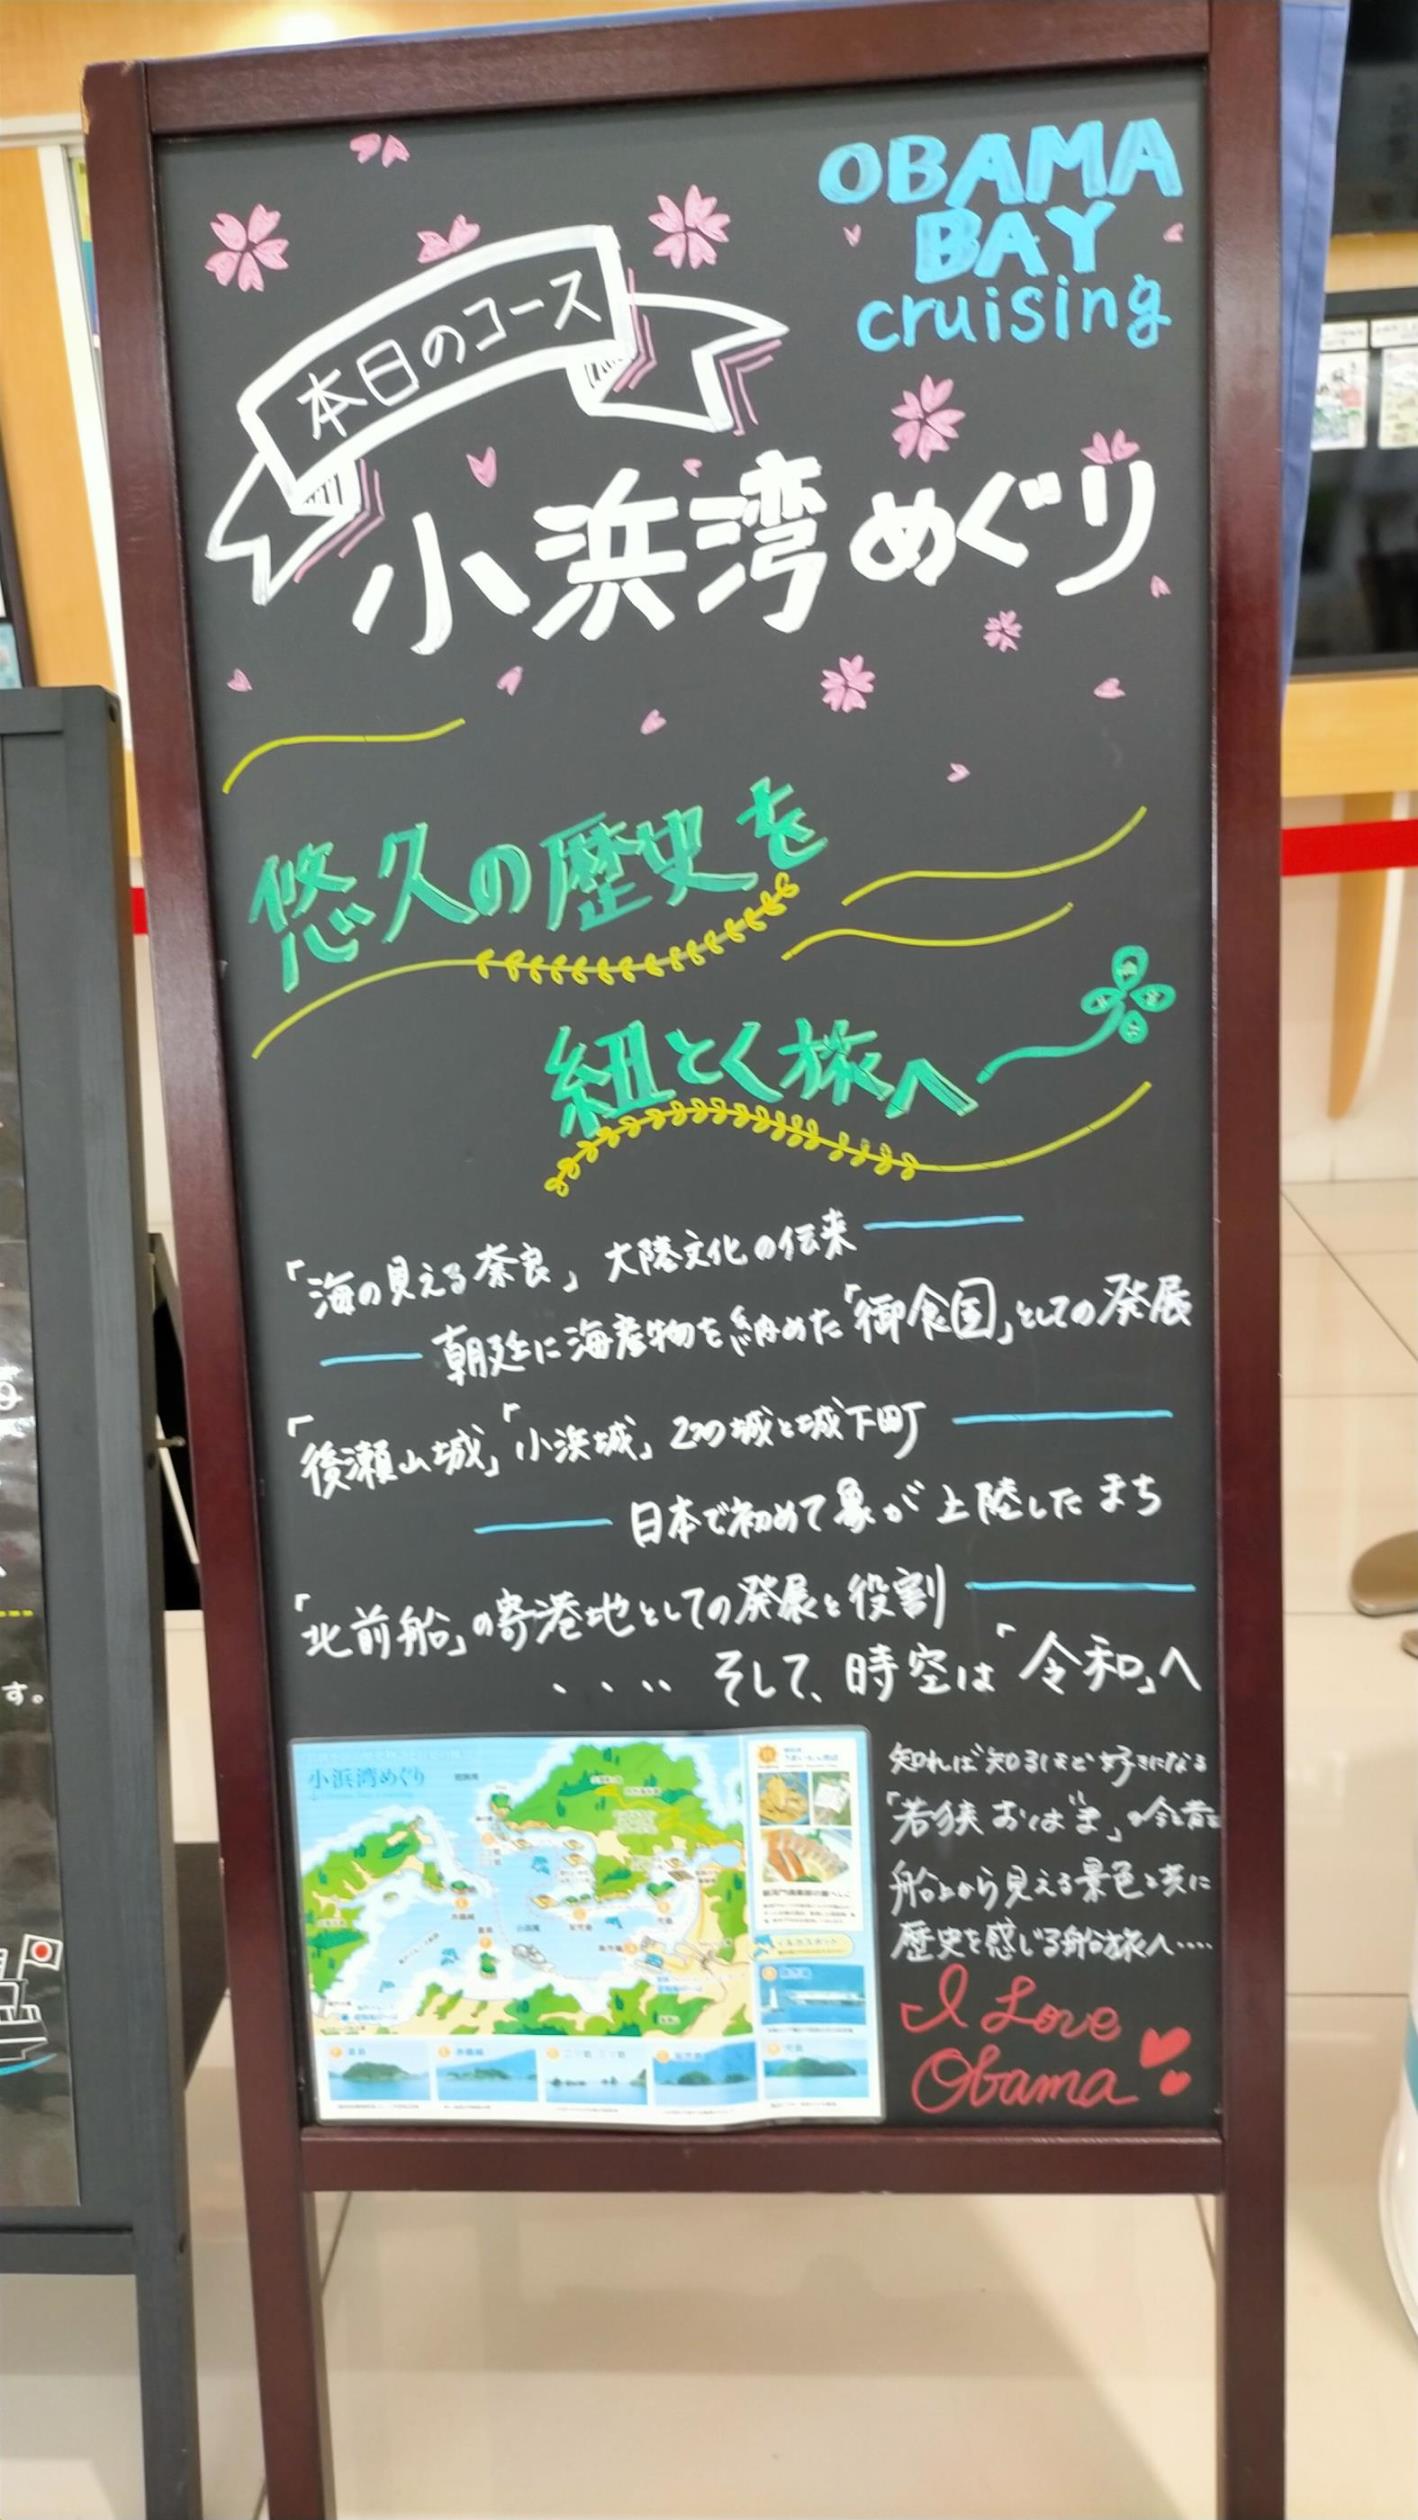 OBAMA
BAY
cruising
本日のコース
小浜湾めぐり
悠久の歴史を
紐とく旅へ
「海の見える奈良」大陸文化の伝来
朝廷に海産物を納めた「御食国」としての発展
「後瀬山城」「小浜城」2つの城と城下町
日本で初めて象が上陸したまち
「北前船」の寄港地としての発展と役割
．．．．そして、時空は「令和」へ
小浜湾めぐり
知れば知るほど好きになる
「若狭おばま」の今と昔を
船上から見える景色と共に
歴史を感じる船旅へ‥‥
I Love
Obama
す。